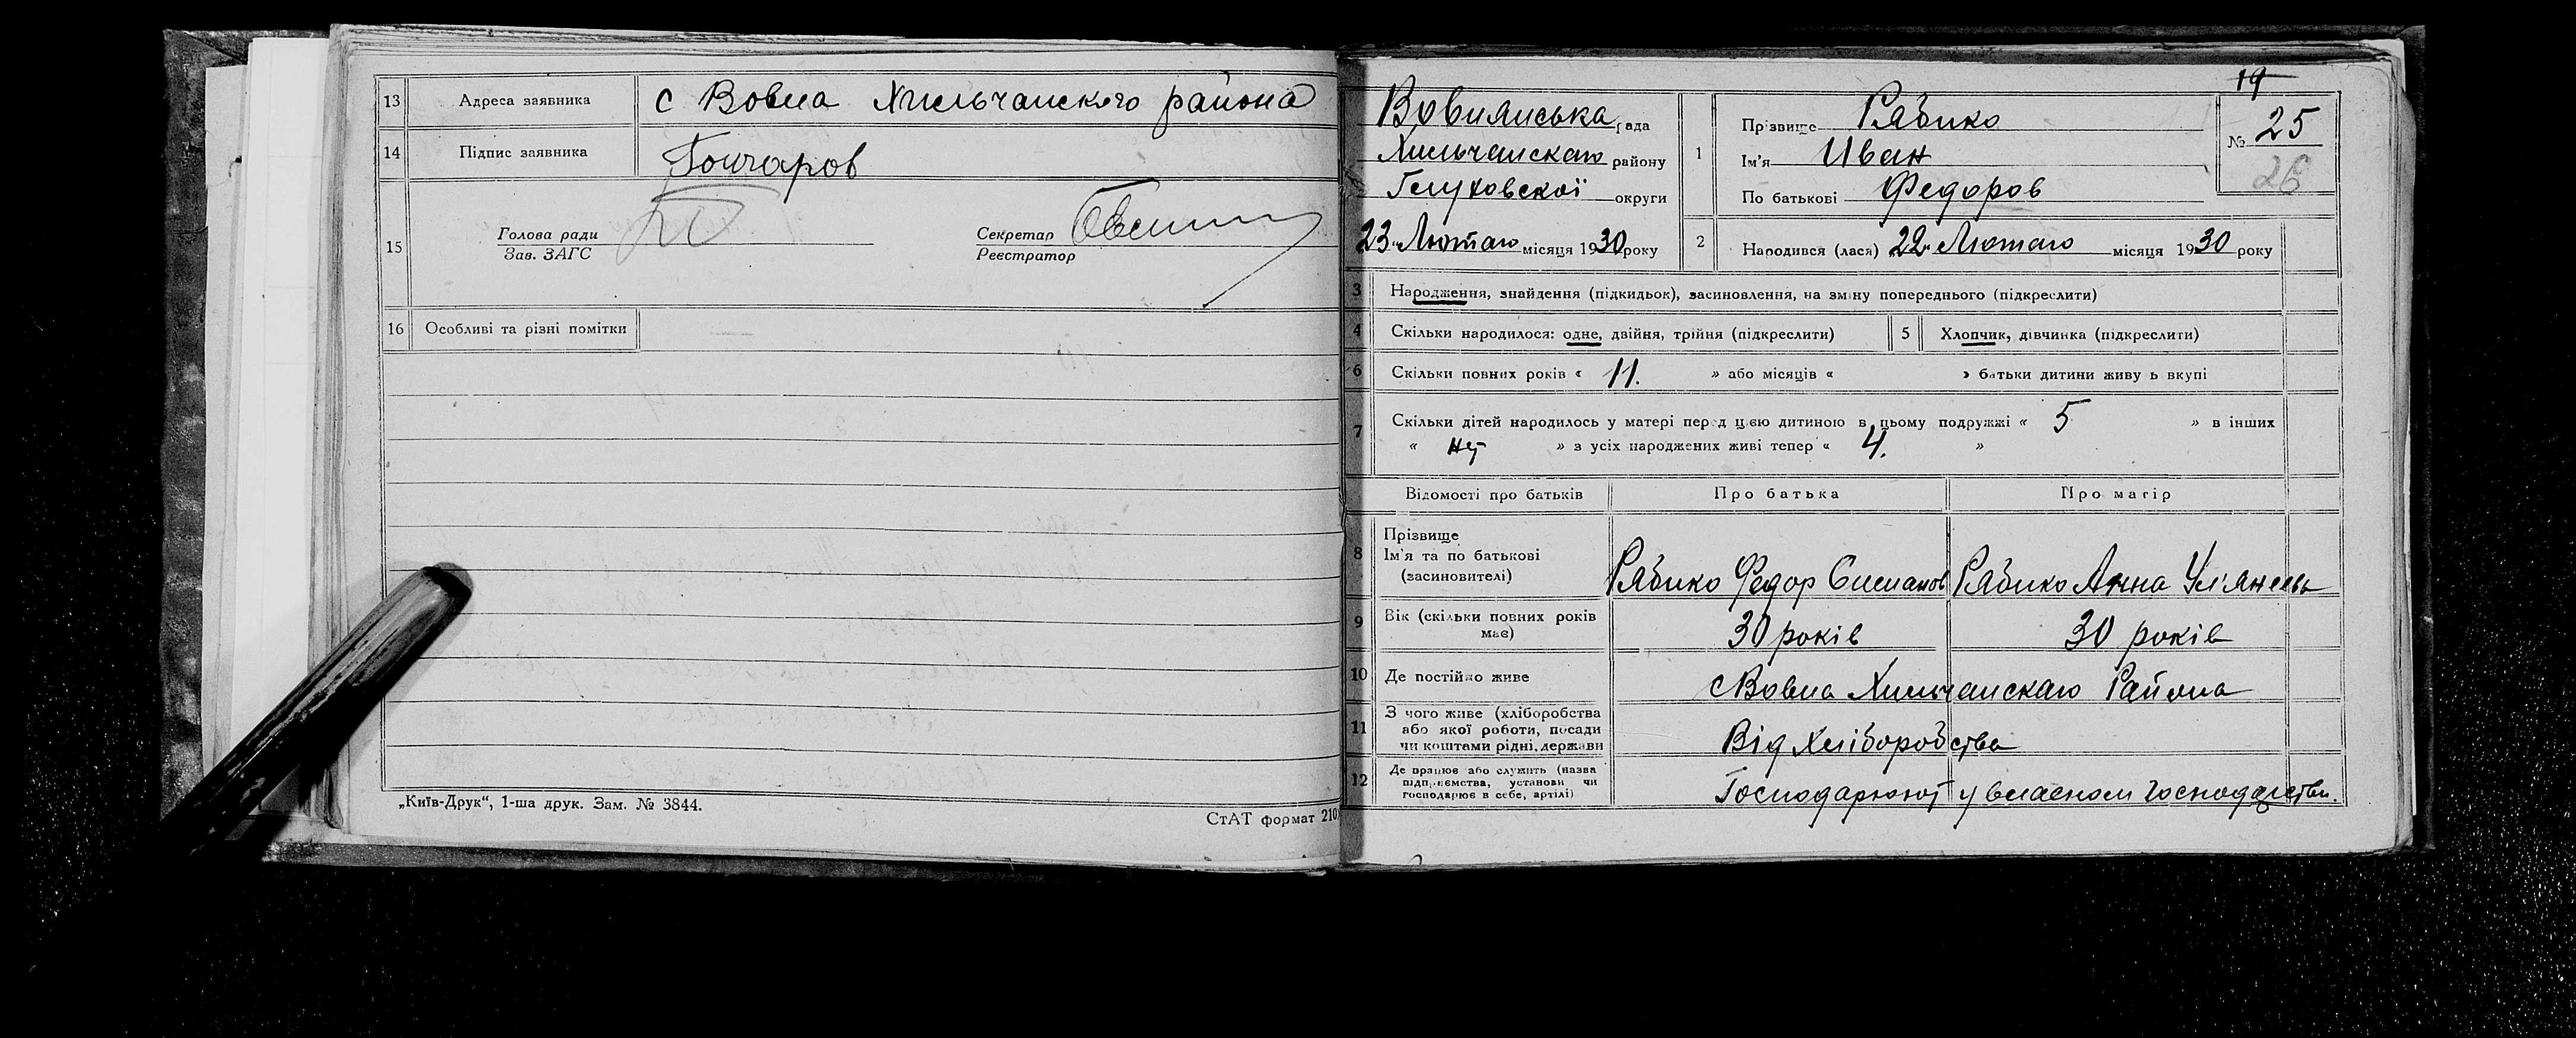 13 Адреса заявника с Вовна Хильчанского района
14 Підпис заявника Гончаров
15 Голова ради
Зав. ЗАГС
Секретар
Реєстратор
16 Особливі та різні помітки
„Київ-Друк“, 1-ша друк. Зам. № 3844.
СтАТ формат 210
19
Вовнянська рада
Хильчанскаго району
Глуховскої округи
23 Лютаго місяця 1930 року
1 Прізвище Рябико
Ім'я Иван
По батькові Федоров
№ 25
26
2 Народився (лася) „22“ Лютаго місяця 1930 року
3 Народження, знайдення (підкидьок), засиновлення, на зміну попереднього (підкреслити)
4 Скільки народилося: одне, двійня, трійня (підкреслити) 5 Хлопчик, дівчинка (підкреслити)
6 Скільки повних років « 11. » або місяців « » батьки дитини живуть вкупі
7 Скільки дітей народилось у матері перед цією дитиною в цьому подружжі « 5 » в інших
« нет » з усіх народжених живі тепер « 4. »
Відомості про батьків Про батька Про матір
8 Прізвище
Ім'я та по батькові
(засиновителі)
Рябико Федор Рябико Анна
9 Вік (скільки повних років
має)
30 років 30 років
10 Де постійно живе с Вовна Хильчанскаго Района
11 З чого живе (хліборобства
або якої роботи, посади
чи коштами рідні, держави
Від Хліборобства
12 Де працює або служить (назва
підприємства, установи чи
господарює в себе, артілі)
Господарюют у власном господарстви.